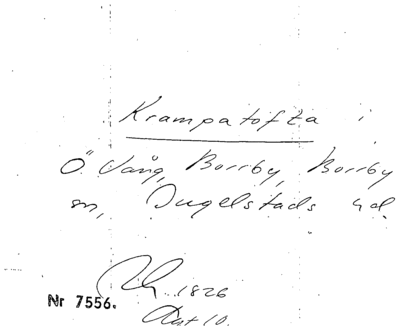 Krampatofta i
Ö. Vång, Borrby, Borrby
sn, Ingelstads hd.
1826
Nr 7556.
Akt 10.